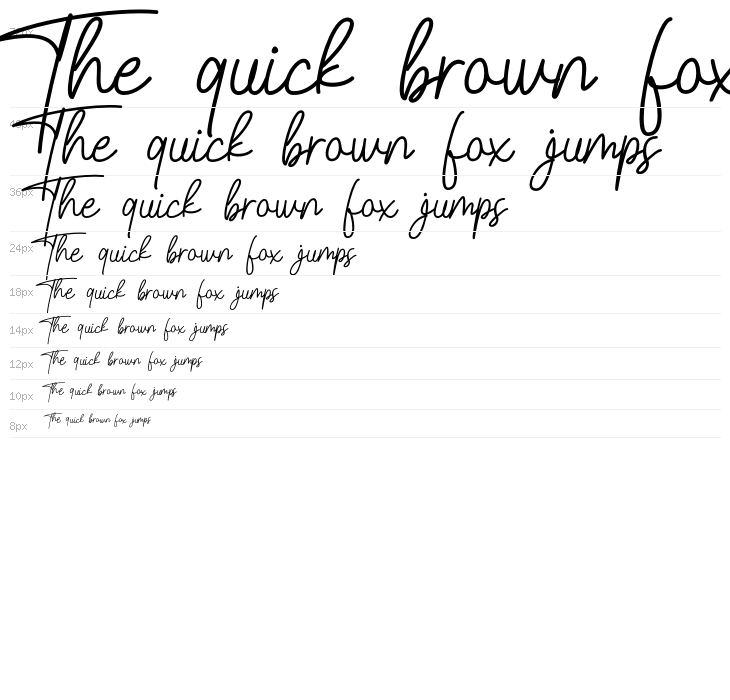 The quick brown fox
48px The quick brown fox jumps
36px The quick brown fox jumps
24px The quick brown fox jumps
18px The quick brown fox jumps
14px The quick brown fox jumps
12px The quick brown fox jumps
10px The quick brown fox jumps
8px The quick brown fox jumps